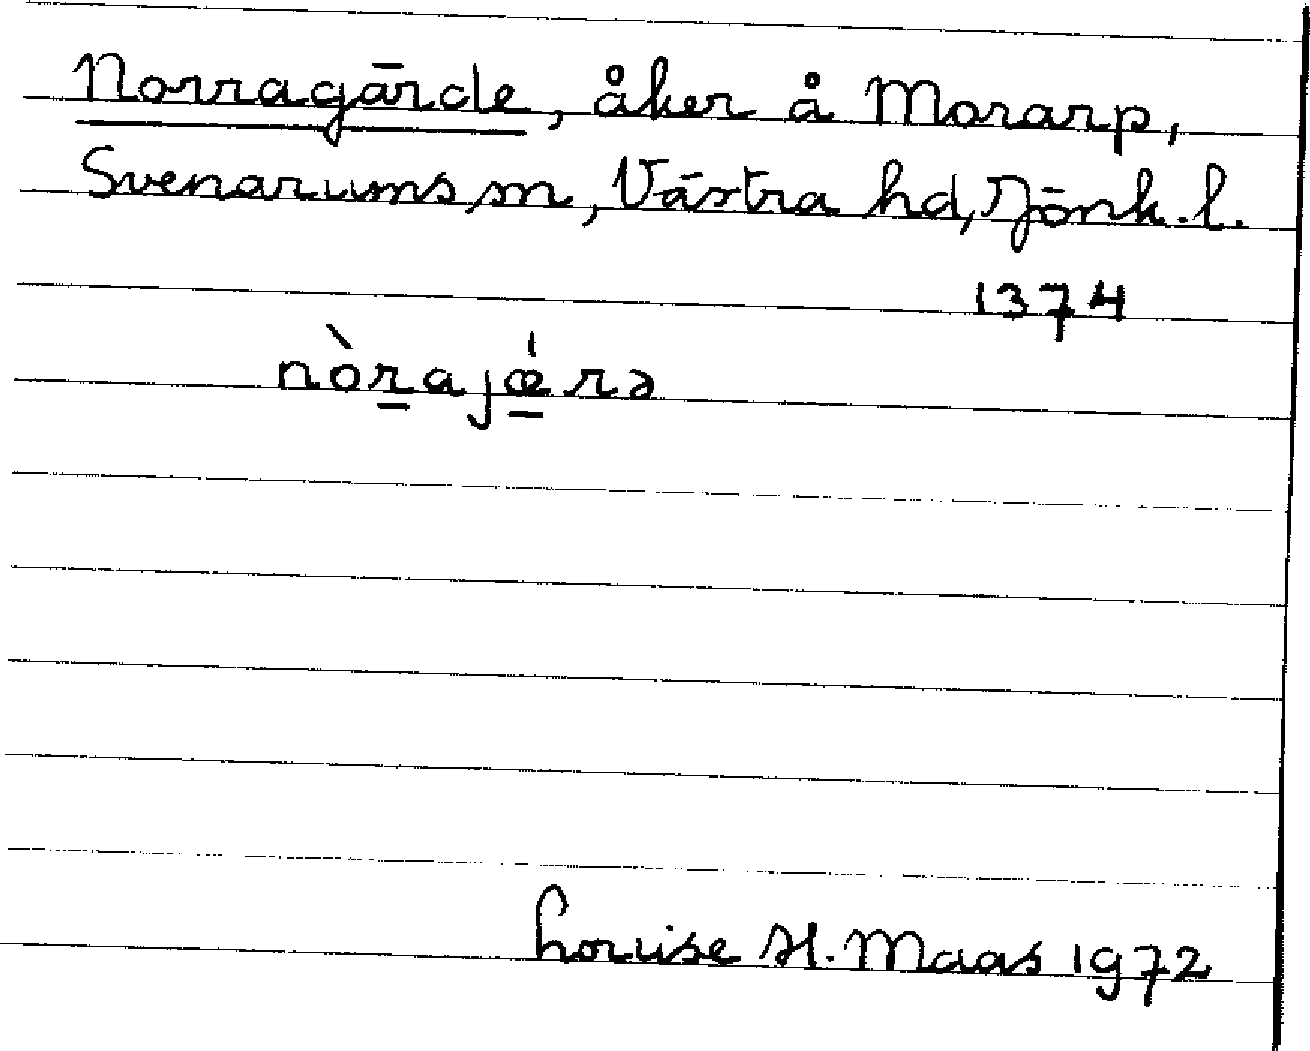 Norragärde, åker å Morarp,
Svenarums sn, Västra hd, Jönk. l.
1374
nòrajǽrə
Louise H. Maas 1972